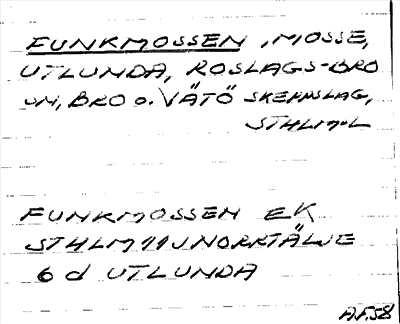 FUNKMOSSEN, MOSSE,
UTLUNDA, ROSLAGS-BRO
SN, BRO o. VÄTÖ SKEPPSLAG,
STHLM-L
FUNKMOSSEN EK
STHLM 11 J NORRTÄLJE
6 d UTLUNDA
A.F. 58